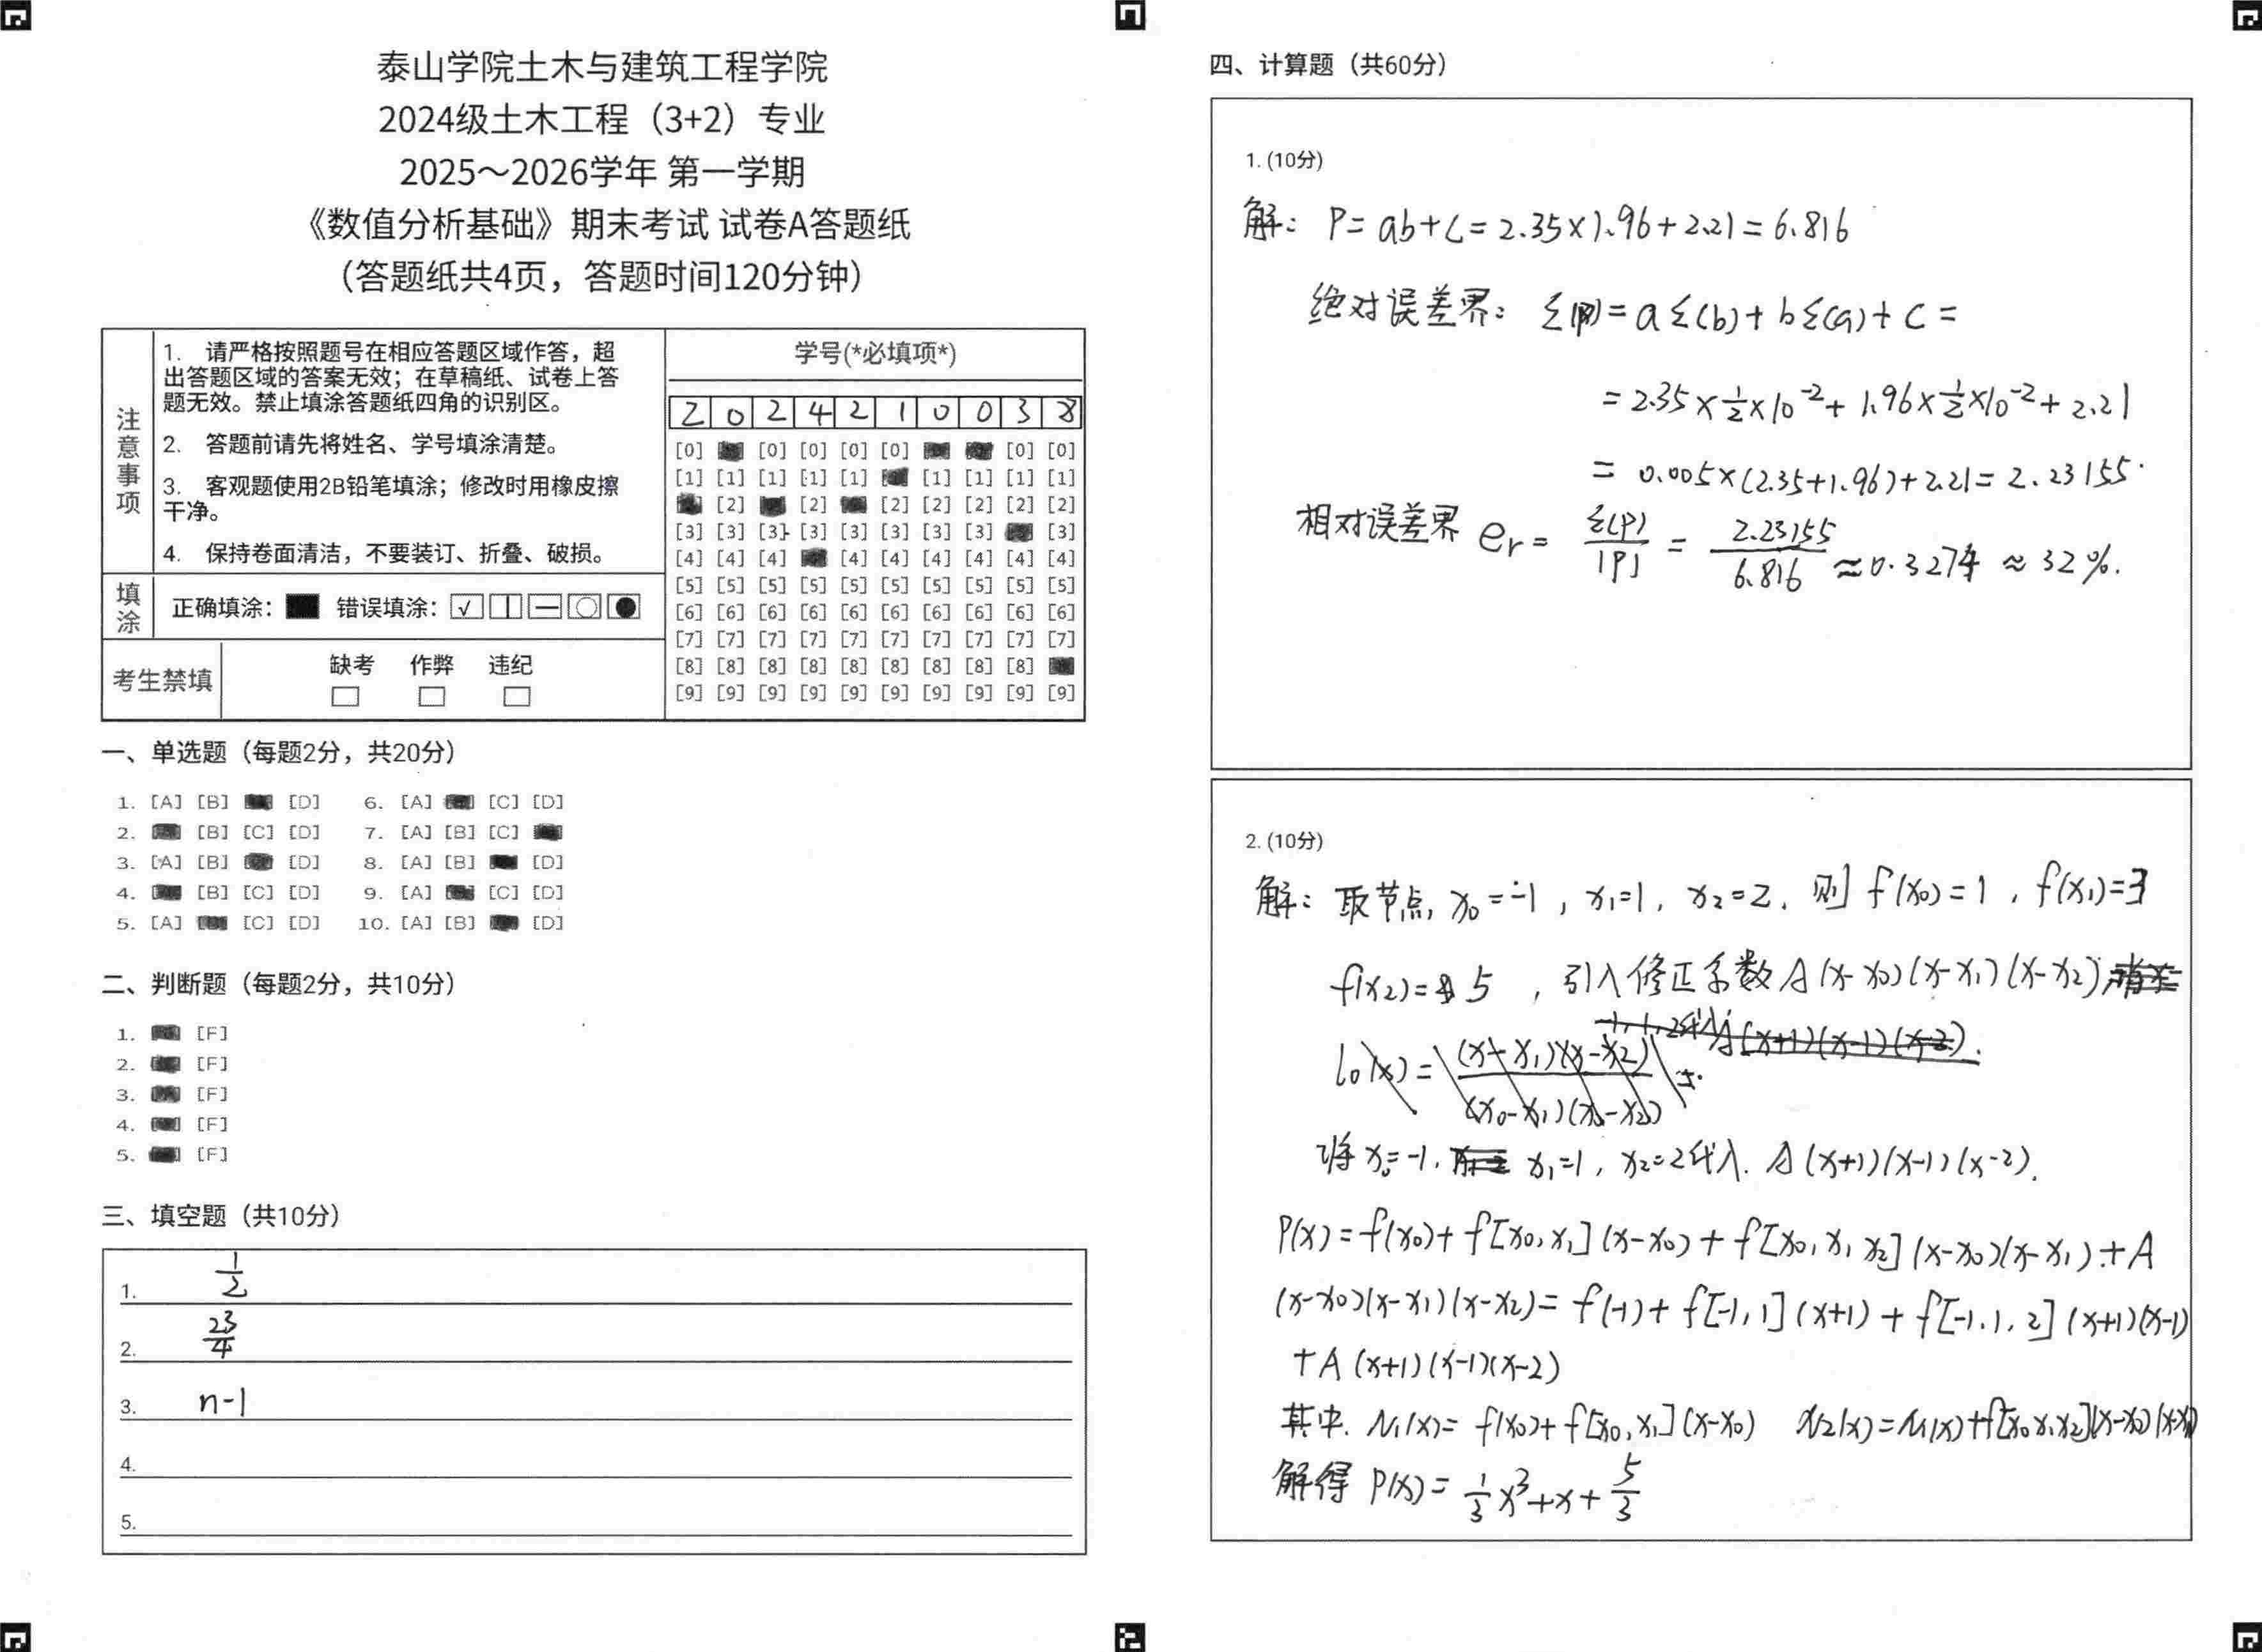 泰山学院土木与建筑工程学院
2024级土木工程（3+2）专业
2025～2026学年 第一学期
《数值分析基础》期末考试 试卷A答题纸
（答题纸共4页，答题时间120分钟）
注意事项
1. 请严格按照题号在相应答题区域作答，超
出答题区域的答案无效；在草稿纸、试卷上答
题无效。禁止填涂答题纸四角的识别区。
2. 答题前请先将姓名、学号填涂清楚。
3. 客观题使用2B铅笔填涂；修改时用橡皮擦
干净。
4. 保持卷面清洁，不要装订、折叠、破损。
填涂
正确填涂： 错误填涂：
考生禁填
缺考 作弊 违纪
学号(*必填项*)
2 0 2 4 2 1 0 0 3 8
[0] [0] [0] [0] [0] [0] [0]
[1] [1] [1] [1] [1] [1] [1] [1] [1]
[2] [2] [2] [2] [2] [2] [2]
[3] [3] [3] [3] [3] [3] [3] [3] [3]
[4] [4] [4] [4] [4] [4] [4] [4] [4]
[5] [5] [5] [5] [5] [5] [5] [5] [5] [5]
[6] [6] [6] [6] [6] [6] [6] [6] [6] [6]
[7] [7] [7] [7] [7] [7] [7] [7] [7] [7]
[8] [8] [8] [8] [8] [8] [8] [8] [8]
[9] [9] [9] [9] [9] [9] [9] [9] [9] [9]
一、单选题（每题2分，共20分）
1. [A] [B] [D] 6. [A] [C] [D]
2. [B] [C] [D] 7. [A] [B] [C]
3. [A] [B] [D] 8. [A] [B] [D]
4. [B] [C] [D] 9. [A] [C] [D]
5. [A] [C] [D] 10. [A] [B] [D]
二、判断题（每题2分，共10分）
1. [F]
2. [F]
3. [F]
4. [F]
5. [F]
三、填空题（共10分）
1. 1/2
2. 23/4
3. n-1
4.
5.
四、计算题（共60分）
1. (10分)
解： P=ab+c=2.35×1.96+2.21=6.816
绝对误差界： Σ(P)=aΣ(b)+bΣ(a)+C=
=2.35×1/2×10⁻²+1.96×1/2×10⁻²+2.21
= 0.005×(2.35+1.96)+2.21=2.23155.
相对误差界 er= Σ(P)/|P| = 2.23155/6.816 ≈0.3274 ≈ 32%.
2. (10分)
解：取节点, x₀=-1, x₁=1, x₂=2. 则 f(x₀)=1, f(x₁)=3
f(x₂)=5 , 引入修正系数 A(x-x₀)(x-x₁)(x-x₂)
l₀(x)= (x-x₁)(x-x₂)/(x₀-x₁)(x₀-x₂) =.
将 x₀=-1. x₁=1, x₂=2代入. A(x+1)(x-1)(x-2).
P(x)=f(x₀)+f[x₀,x₁](x-x₀)+f[x₀,x₁ x₂](x-x₀)(x-x₁)+A
(x-x₀)(x-x₁)(x-x₂)=f(-1)+f[-1,1](x+1)+f[-1.1.2](x+1)(x-1)
+A(x+1)(x-1)(x-2)
其中. N₁(x)=f(x₀)+f[x₀,x₁](x-x₀) N₂(x)=N₁(x)+f[x₀x₁x₂](x-x₀)(x-x₁)
解得 P(x)= 1/3 x³+x+ 5/3